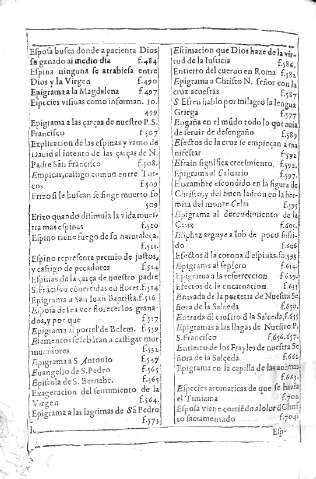 Esposa busca donde apacienta Dios
su ganado al medio dia f.484
Espina ninguna se atrabiesa entre
Dios y la Virgen f.490
Epigrama a la Magdalena f.497
Especies visiuas como informan. fo.
499
Epigrama a las çarças de nuestro P.S.
Francisco f.507
Explicacion de las espinas y ramo de
Dauid al intento de las çarças de N.
Padre San Francisco f.508.
castigo comun entre Tur-
cos f.509
Erizo si le buscan se finge muerto fol
509
Erizo quando disimula la vida mues-
tra mas espinas f.510
Espino tiene fuego de su naturaleça.
f.511.
Espino representa premio de justos,
y castigo de pecadores f.514
Espinas de la çarça de nuestro padre
S. Francisco conuertidas en flores. f.514
Epigrama a San Iuan Baptista. f.516
Esposa desea ver florecer los grana-
dos, y por que f.517
Epigrama al portel de Belem. f.539
Elementos se lebantan a castigar mor
muradores f.552
Epigrama a S. Antonio f.547
Euangelio de S. Pedro f.565
Epistola de S. Bernabe. f.565
Exageracion del sentimiento de la
Virgen f.564.
Epigrama a las lagrimas de Sã Pedro
f.573
Estimacion que Dios haze de la vir-
tud de la Iusticia f.586.
Entierro del cuerpo en Roma f.582
Epigrama a Christo N. Señor con la
cruz acuestas f.587
S. Efren hablo por milagro la lengua
Griega f.577
Engaña en el mũdo todo lo que
de seruir de desengaño f.589
Efectos de la cruz se empieçan a ma
nifestar f.592
Efrain significa crecimiento. f.592.
Epigrama al Caluario f.597.
escondido en la figura de
Christo, y del buen ladron en la her
mita del monte Celia f.595
Epigrama al
Cruz f.605.
arguye a Iob de poco sufri-
do f.606.
Efectos d la corona d espinas. f.598
Epigrama al sepulcro f.614.
Epigrama a la resurreccion f.635
Efectos de la encarnacion f.633
Entrada de la porteria de Nuestra Se
ñora de la Salceda f.650.
Entrada del claustro d la Salceda, f.653
Epigrama a las llagas de Nuestro P.
S. Francisco f.656.657.
Entierro de los Frayles de nuestra Se
ñora de la Salceda f.662
Epigrama en la capilla de las animas
f.665.
Especies aromaticas de que se hazia
el Timiama f.702
Esposa viene corriẽdo al olor d Chris
to sacramentado f.704.
Esp-